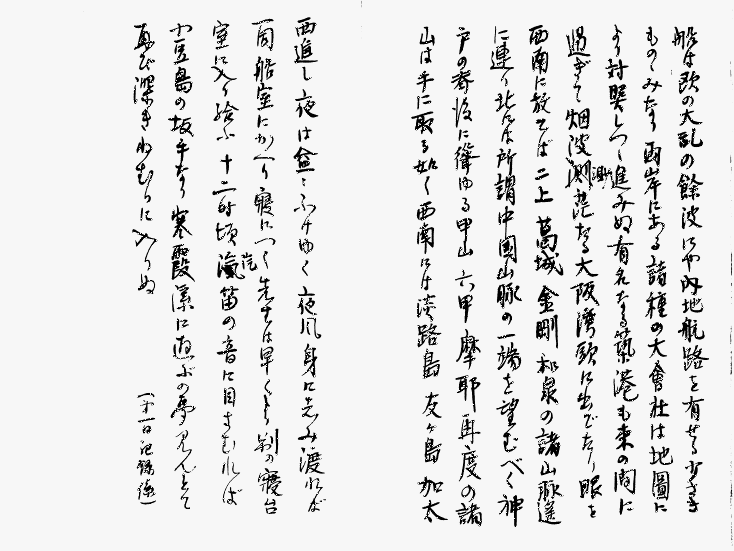 船は欧の大乱の餘波にや内地航路を有せる少さき
ものゝみなり両岸にある諸種の大會社は地圖に
より対照しつゝ進みぬ有名なる築港も束の間に
過ぎて烟波渺茫なる大阪湾頭に出でたり眼を
西南に放てば二上葛城金剛和泉の諸山脈遙
に連り北には所謂中国山脈の一端を望むべく神
戸の背後に聳ゆる甲山六甲摩耶再度の諸
山は手に取る如く西南には淡路島友ヶ島加太
西進し夜は益々ふけゆく夜風身に志み渡れば
一同船室にかへり寝につく先生は早くより別の寝台
室に入り給ふ十二時頃汽笛の音に目さむれば
小豆島の坂手なり寒霞渓に遊ぶの夢見んとて
再び深きねむりに入りぬ
(十一日記録 )